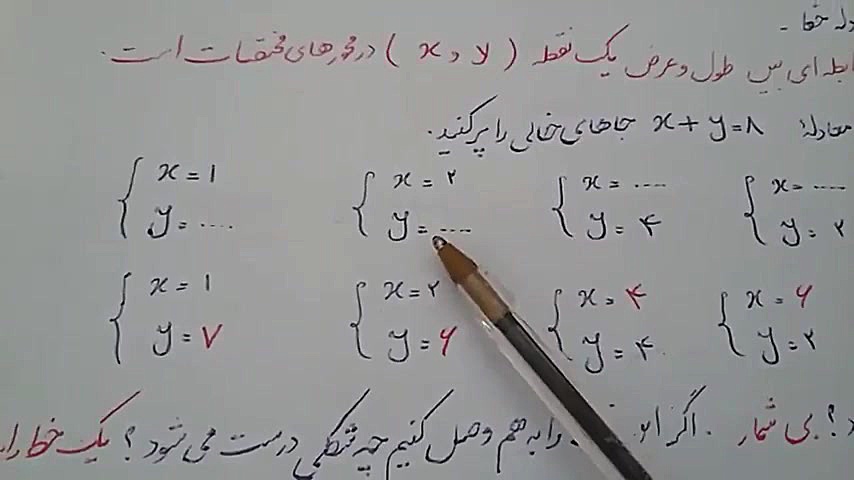 خط -
ای بین طول و عرض یک نقطه ( x و y ) در محورهای مختصات است.
معادلهٔ x + y = ۸ جاهای خالی را پر کنید.
x = .... x = .... x = ۲ x = ۱
y = ۲ y = ۴ y = .... y = ....
x = ۶ x = ۴ x = ۲ x = ۱
y = ۲ y = ۴ y = ۶ y = ۷
؟ بی شمار . اگر را به هم وصل کنیم چه شکلی درست می شود ؟ یک خط را